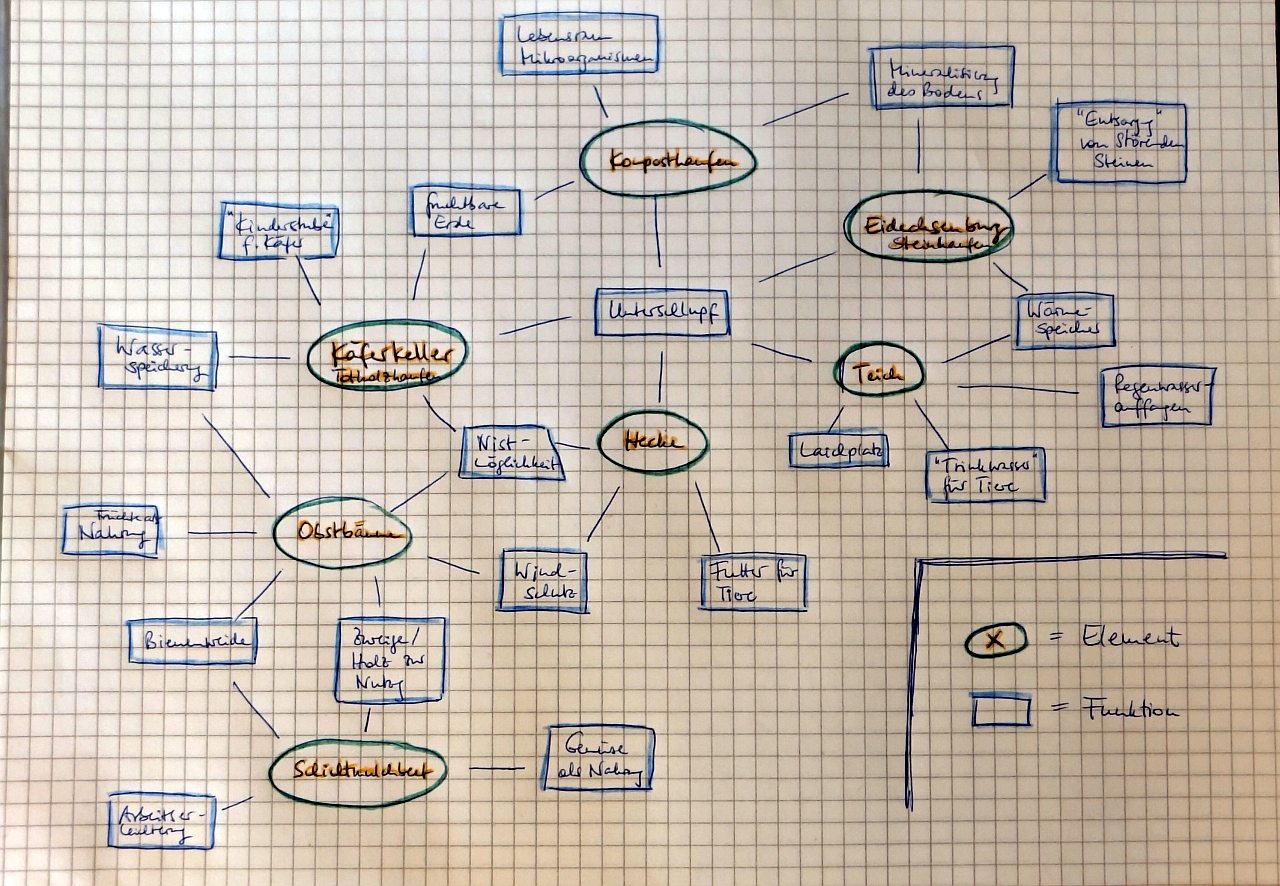 Lebensraum
Mikroorganismen
Mineralisierung
des Bodens
"Entsorgg"
von störenden
Steinen
Komposthaufen
fruchtbare
Erde
"Kinderstube"
f. Käfer
Eidechsenburg
Steinhaufen
Unterschlupf
Wärme-
speicher
Wasser-
speicherung
Käferkeller
Totholzhaufen
Teich
Regenwasser-
auffangen
Nist-
möglichkeit
Hecke
Laichplatz
"Trinkwasser"
für Tiere
Früchte als
Nahrung
Obstbäume
Wind-
schutz
Futter für
Tiere
Bienenweide
Zweige/
Holz zur
Nutzg
X = Element
= Funktion
Schichtmulchbeet
Gemüse
als Nahrung
Arbeitser-
leichterung